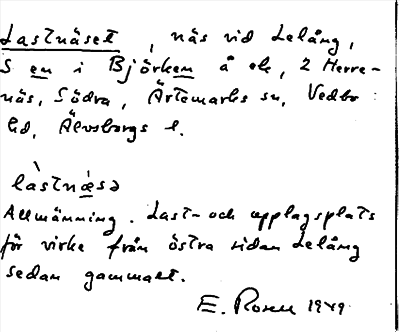 Lastnäset, näs vid Lelång,
S en i Björken å ek, 2 Herre-
näs, Södra, Ärtemarks sn, Vedbo
hd, Älvsborgs l.
làstnæ̀sə
Allmänning. Last- och upplagsplats
för virke från östra sidan Lelång
sedan gammalt.
E. Rosen 1949.